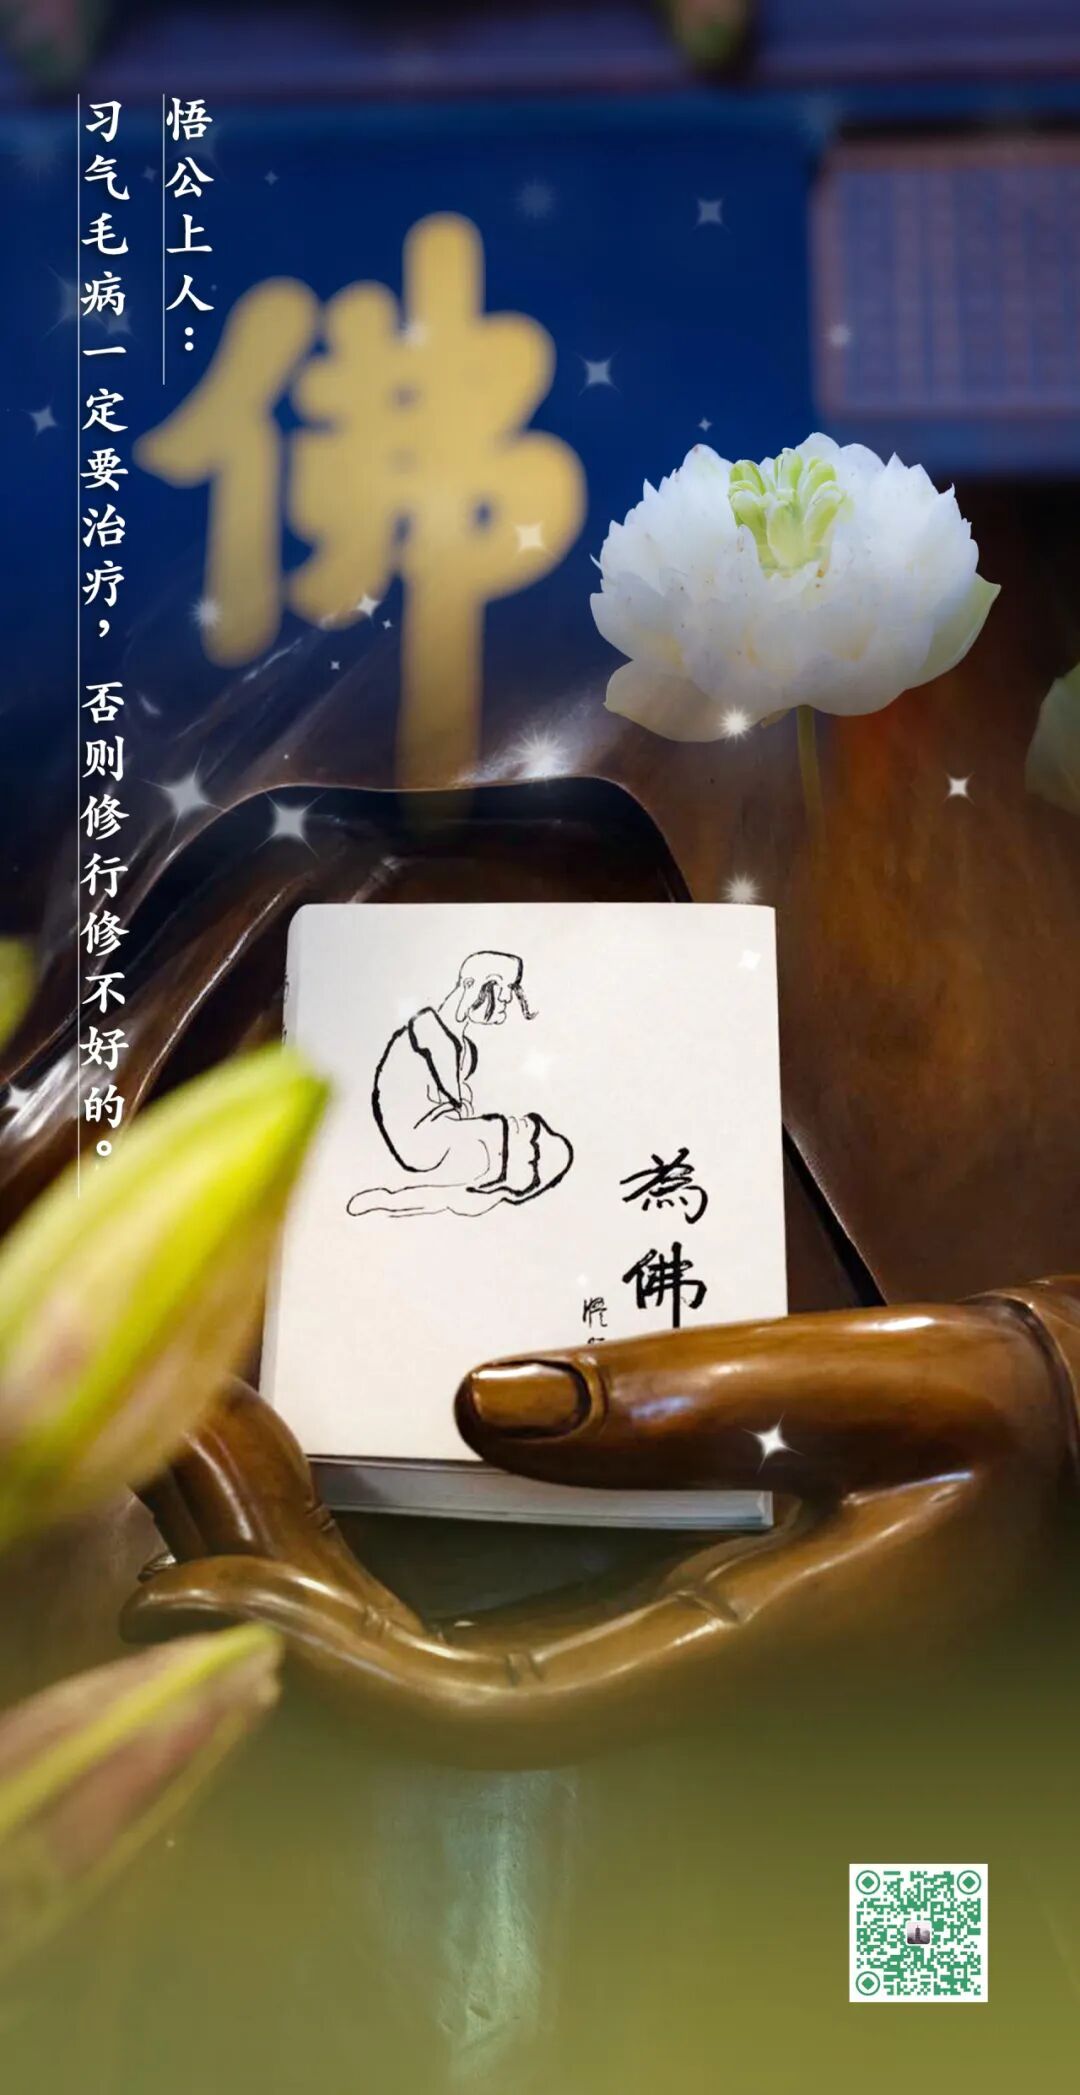 悟公上人：
习气毛病一定要治疗，否则修行修不好的。
佛
為
佛